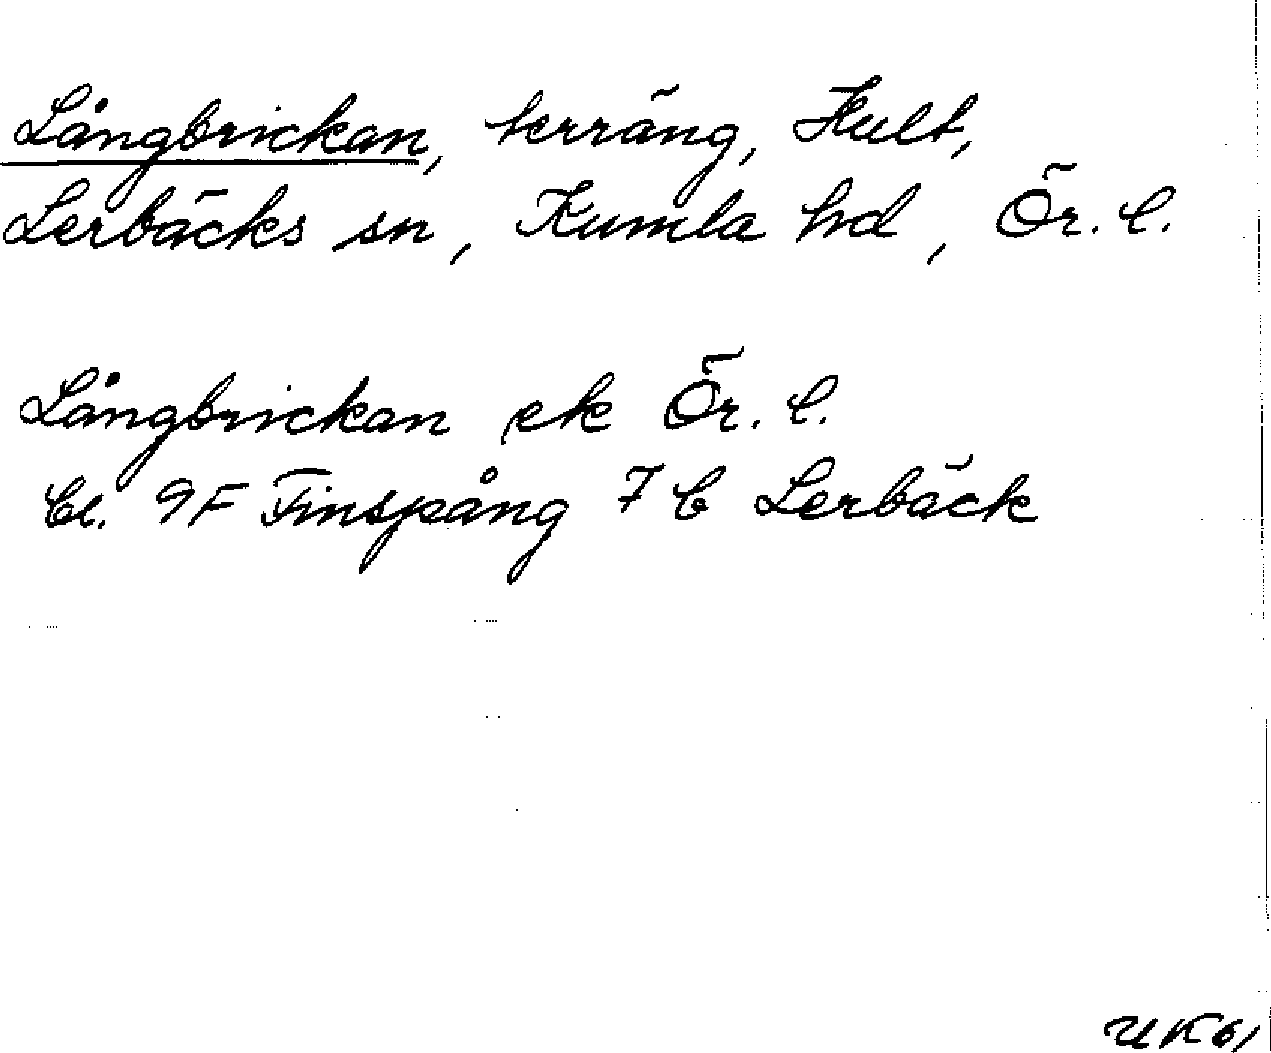 Långbrickan, terräng, Hult,
Lerbäcks sn, Kumla hd, Ör. l.
Långbrickan ek Ör. l.
bl. 9F Finspång 7 b Lerbäck
UK61